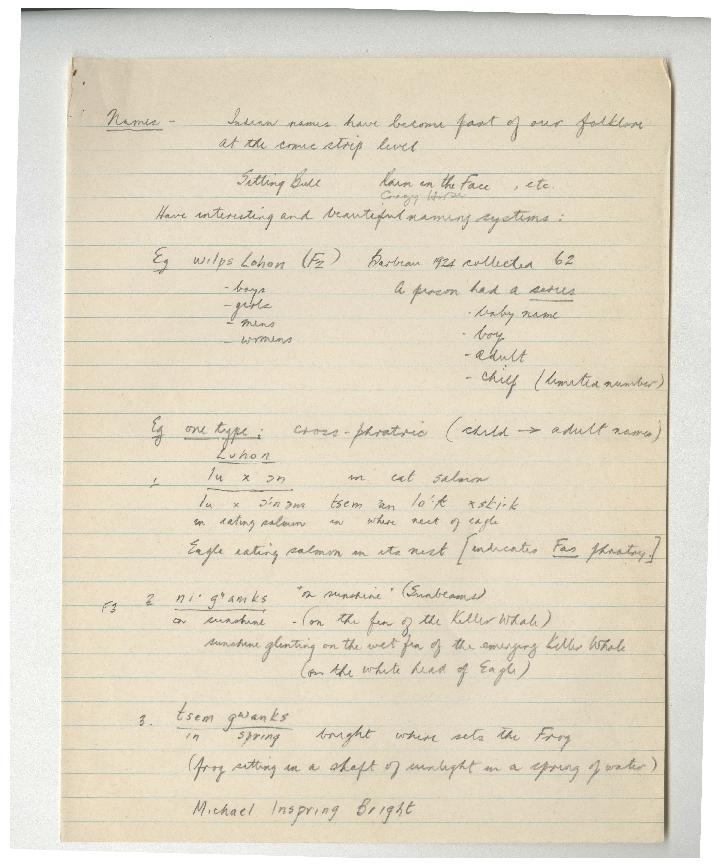 Names - Indian names have become part of our folklore
at the comic strip level
Sitting Bull Rain in the Face , etc.
Crazy Horse
Have interesting and beautiful naming systems :
Eg wilps Luhon (F2) Barbeau 1924 collected 62
- boys A person had a series
- girls - baby name
- mens - boy
- womens - adult
- chief (limited number)
Eg one type : cross-phratric (child → adult names)
Luhon
1. lu x ɔn in eat salmon
in eating salmon in where nest of eagle
Eagle eating salmon in its nest [indicates phratry.]
F3 2. ni· gʷanks "on sunshine" (Sunbeams)
on sunshine - (on the fin of the Killer Whale)
sunshine glinting on the wet fin of the emerging Killer Whale
(on the white head of Eagle)
3. tsem gʷanks
in spring bright where sets the Frog
(frog sitting in a shaft of sunlight in a spring of water)
Michael Inspring Bright